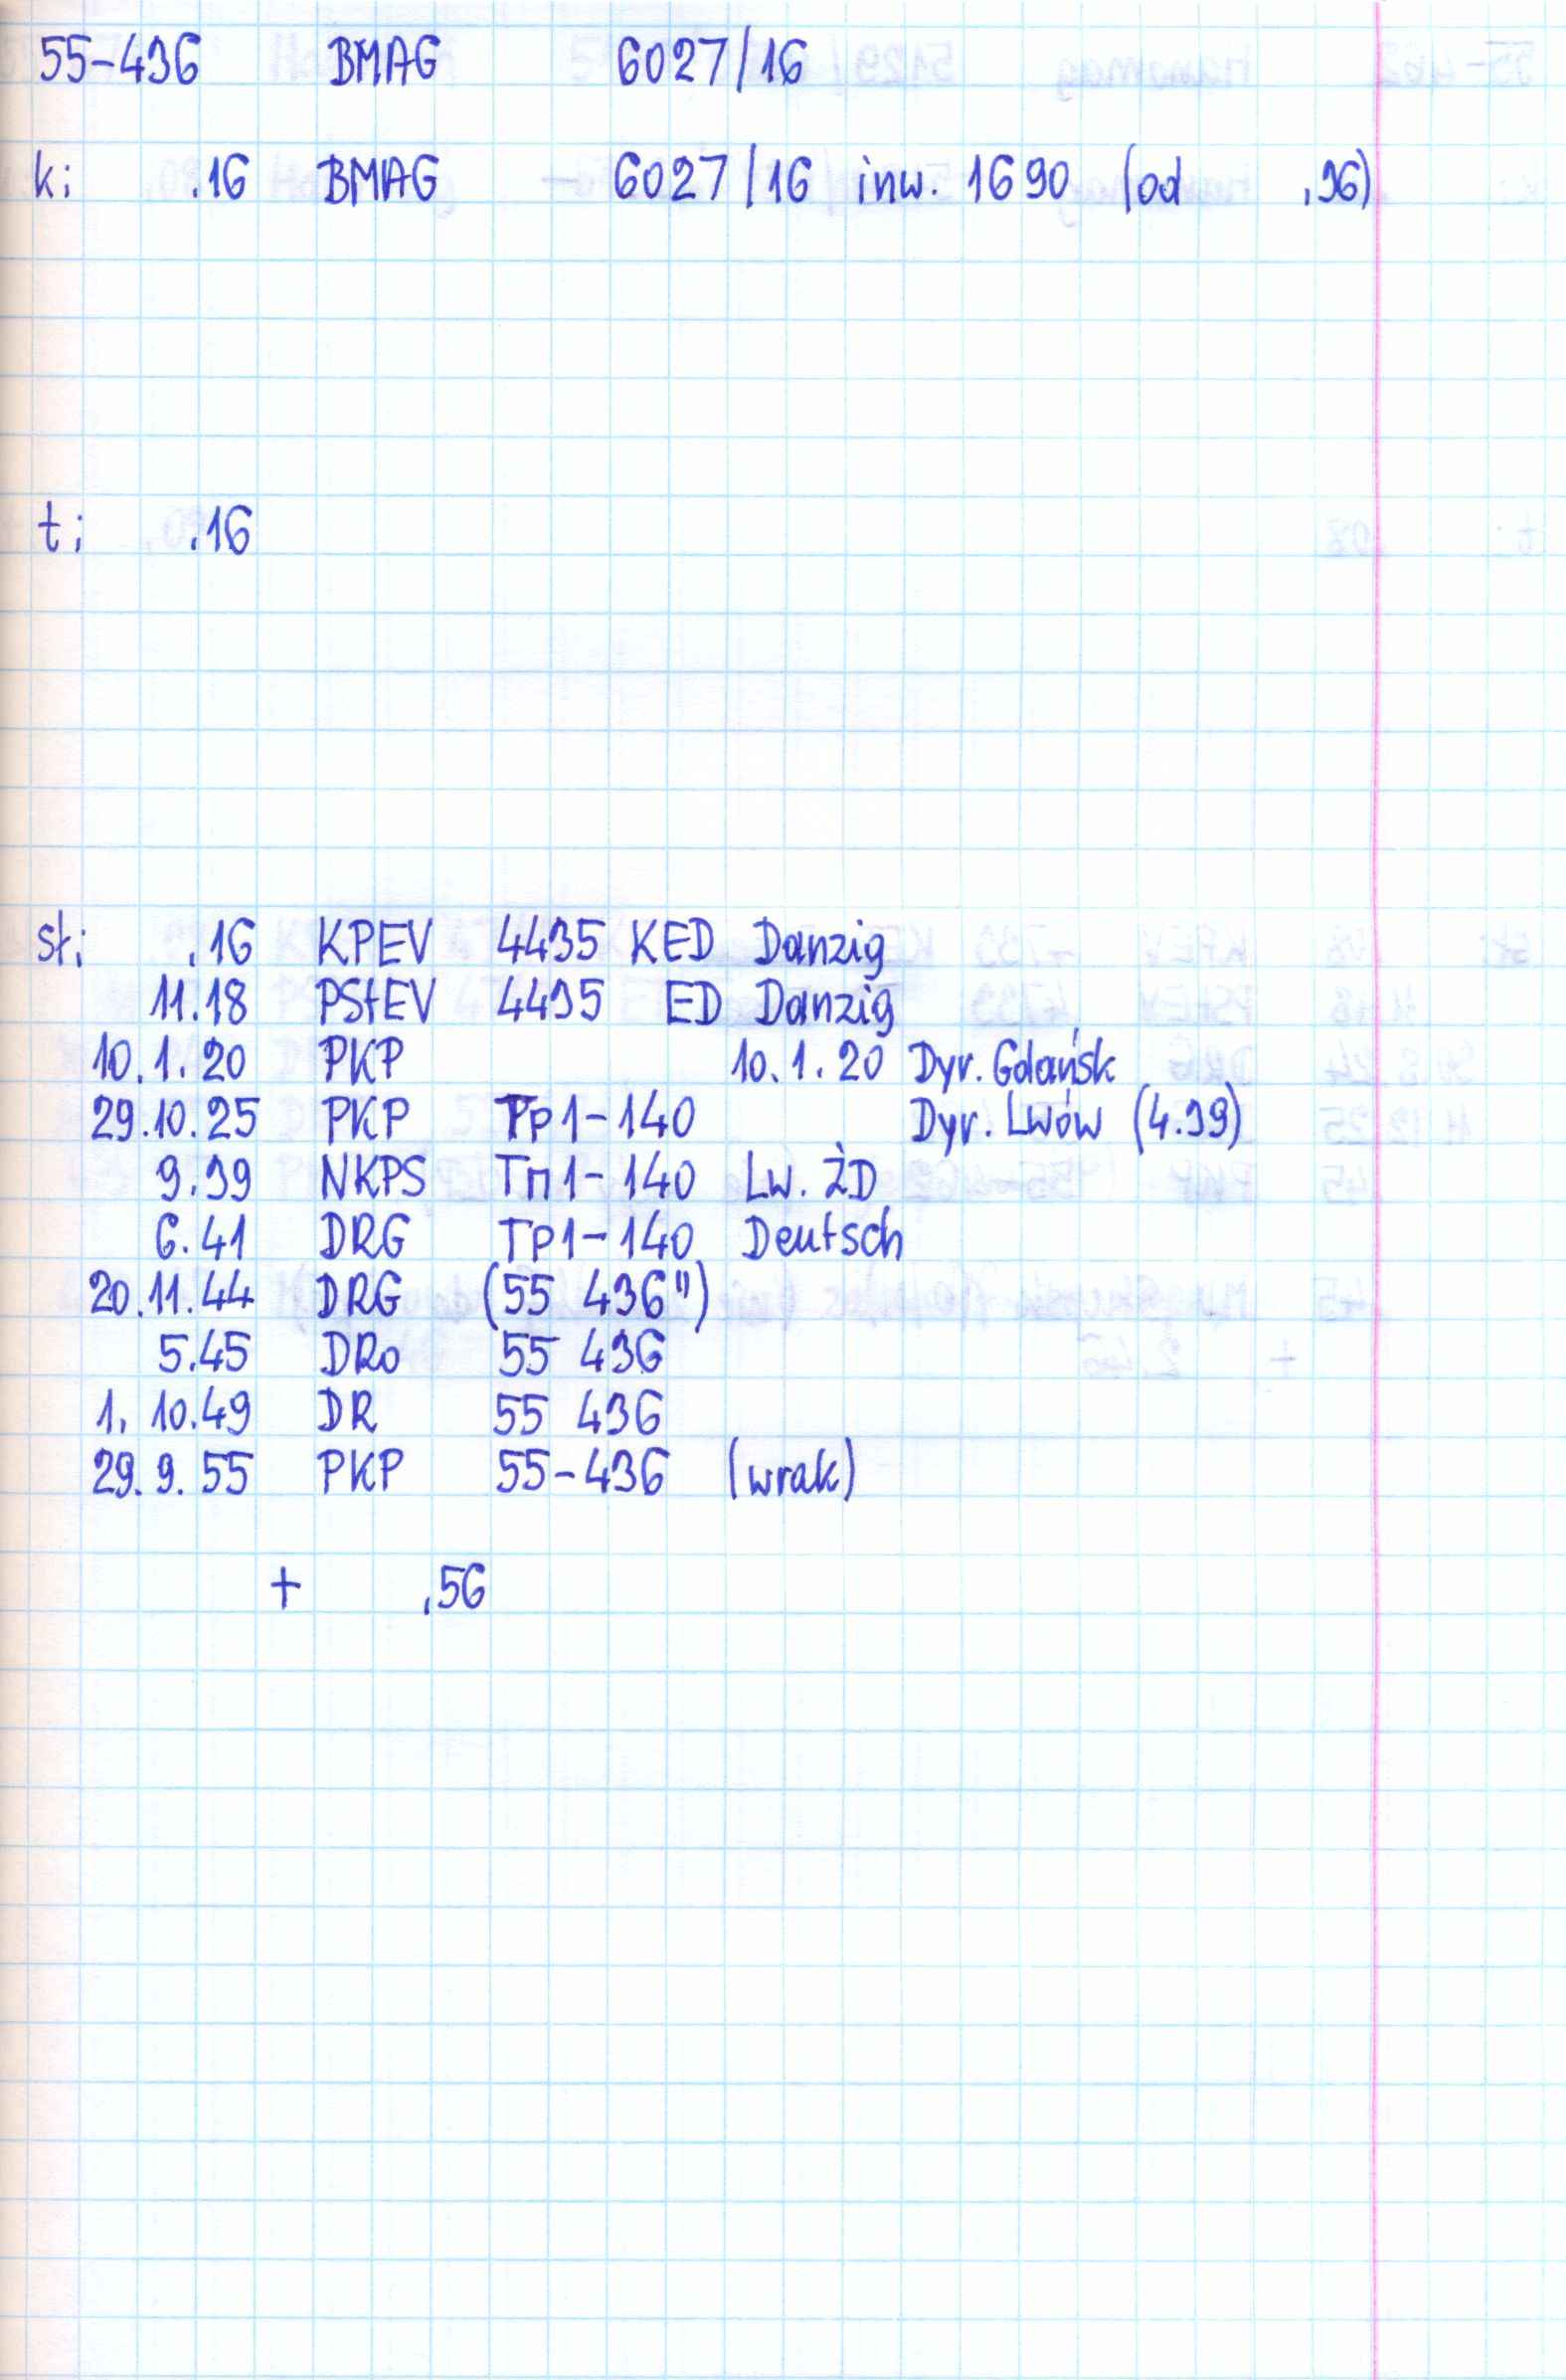 55-436 BMAG 6027/16
k: .16 BMAG 6027/16 inw. 1690 (od .36)
t: .16
sł: .16 KPEV 4435 KED Danzig
11.18 PStEV 4435 ED Danzig
10.1.20 PKP 10.1.20 Dyr. Gdańsk
29.10.25 PKP Tp1-140 Dyr. Lwów (4.39)
9.39 NKPS Тп1-140 Lw. ŻD
6.41 DRG Tp1-140 Deutsch
20.11.44 DRG (55 436")
5.45 DRo 55 436
1. 10.49 DR 55 436
29.9.55 PKP 55-436 (wrak)
+ .56